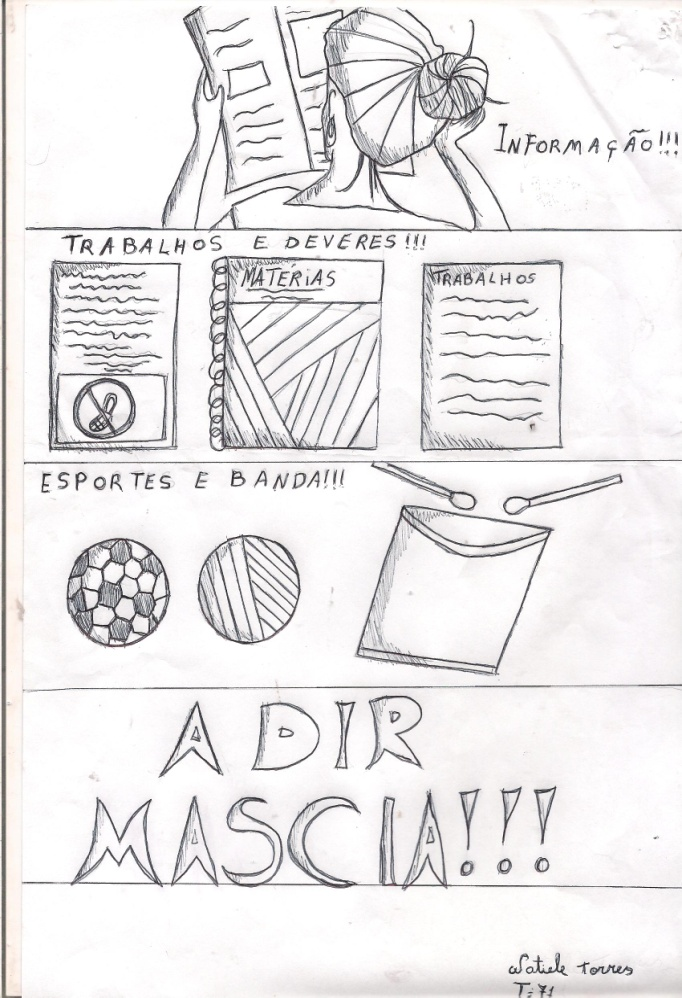 INFORMAÇÃO!!!
TRABALHOS E DEVERES!!!
MATÉRIAS
TRABALHOS
ESPORTES E BANDA!!!
ADIR
MASCIA!!!
Natiele Torres
T:71